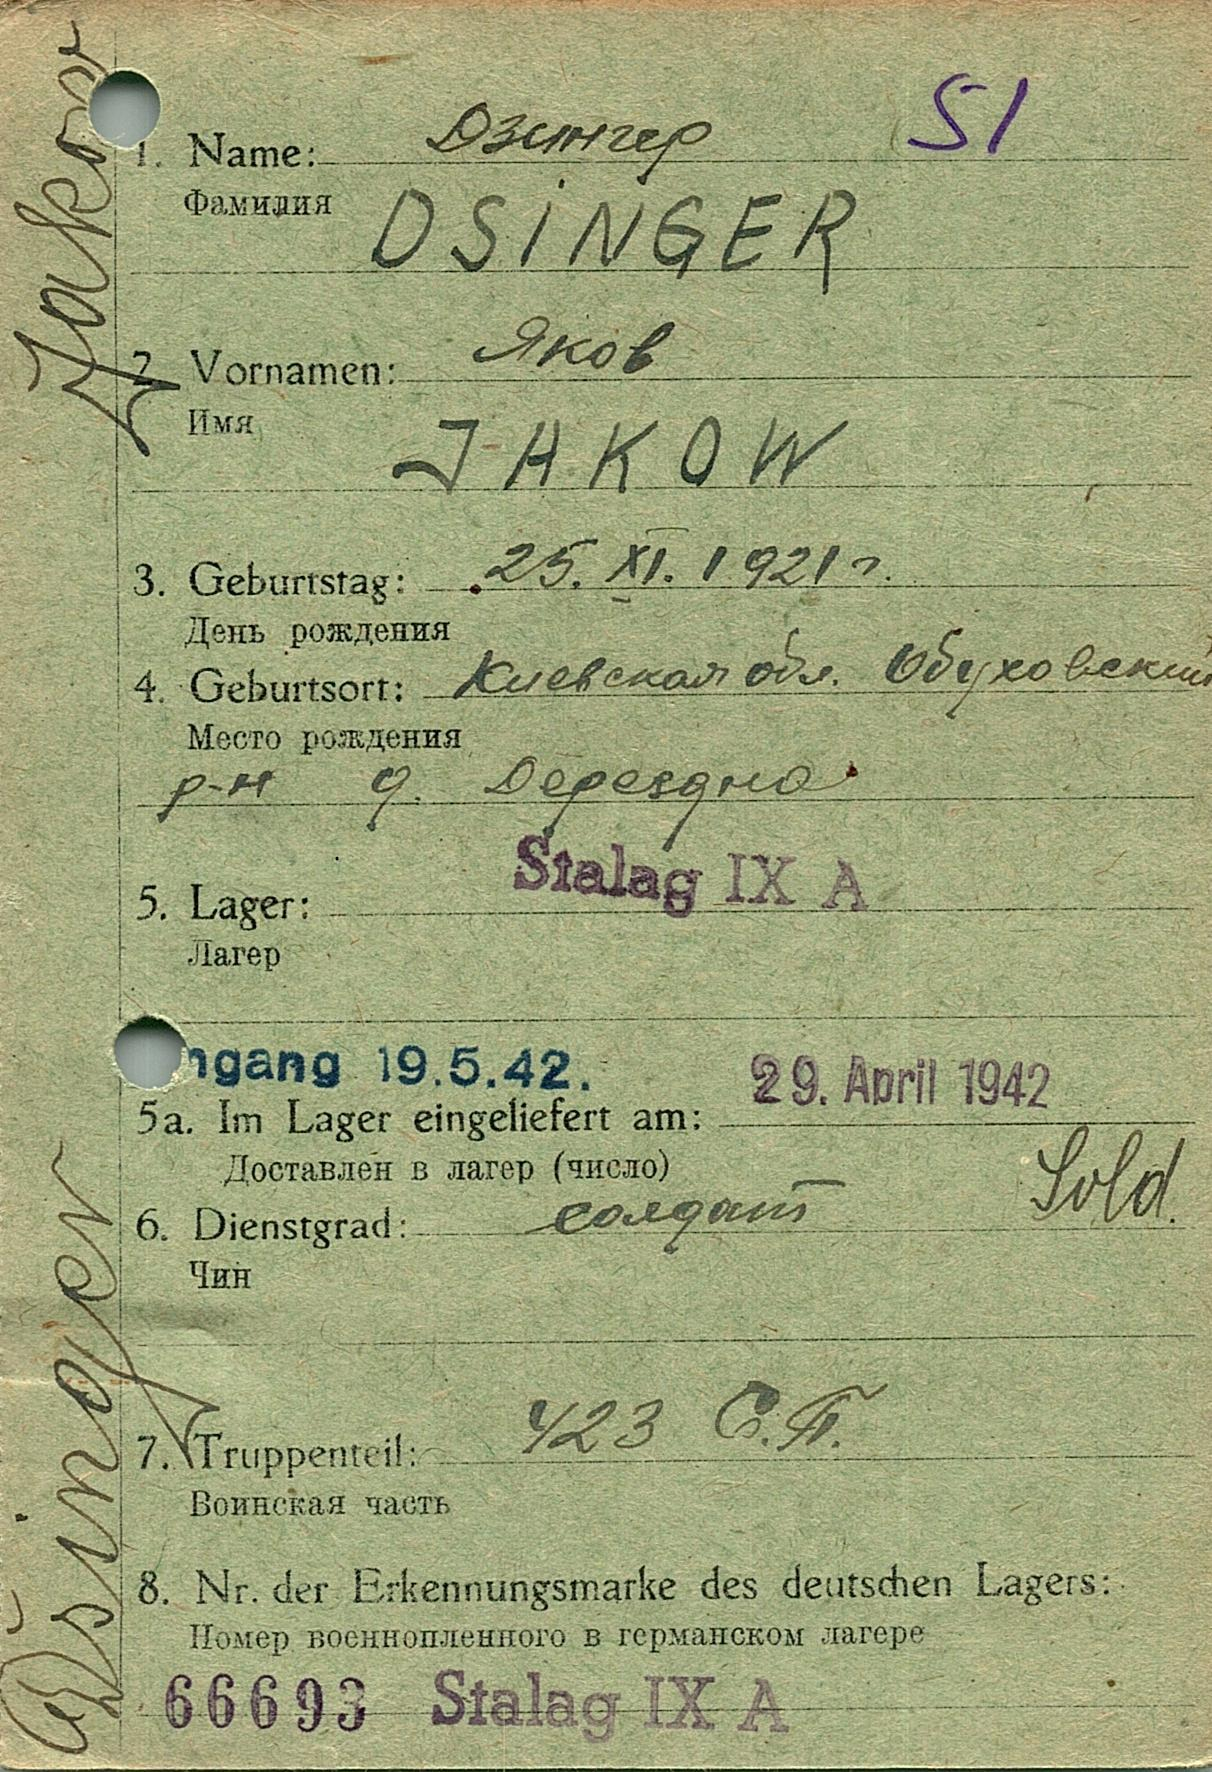 Дзингер
51
1. Name:
Фамилия
DSINGER
Яков
2. Vornamen:
Имя
JAKOW
3. Geburtstag: 25. XI. 1921 г.
День рождения
4. Geburtsort: Киевская обл. Обуховский
Место рождения
р-н д.
Stalag IX A
5. Lager:
Лагер
ngang 19.5.42.
29. April 1942
5a. Im Lager eingeliefert am:
Доставлен в лагер (число)
Sold.
6. Dienstgrad: солдат
Чин
7. Truppenteil: 423 С.П.
Воинская часть
8. Nr. der Erkennungsmarke des deutschen Lagers:
Номер военнопленного в германском лагере
66693 Stalag IX A
Dsinger
Jakow